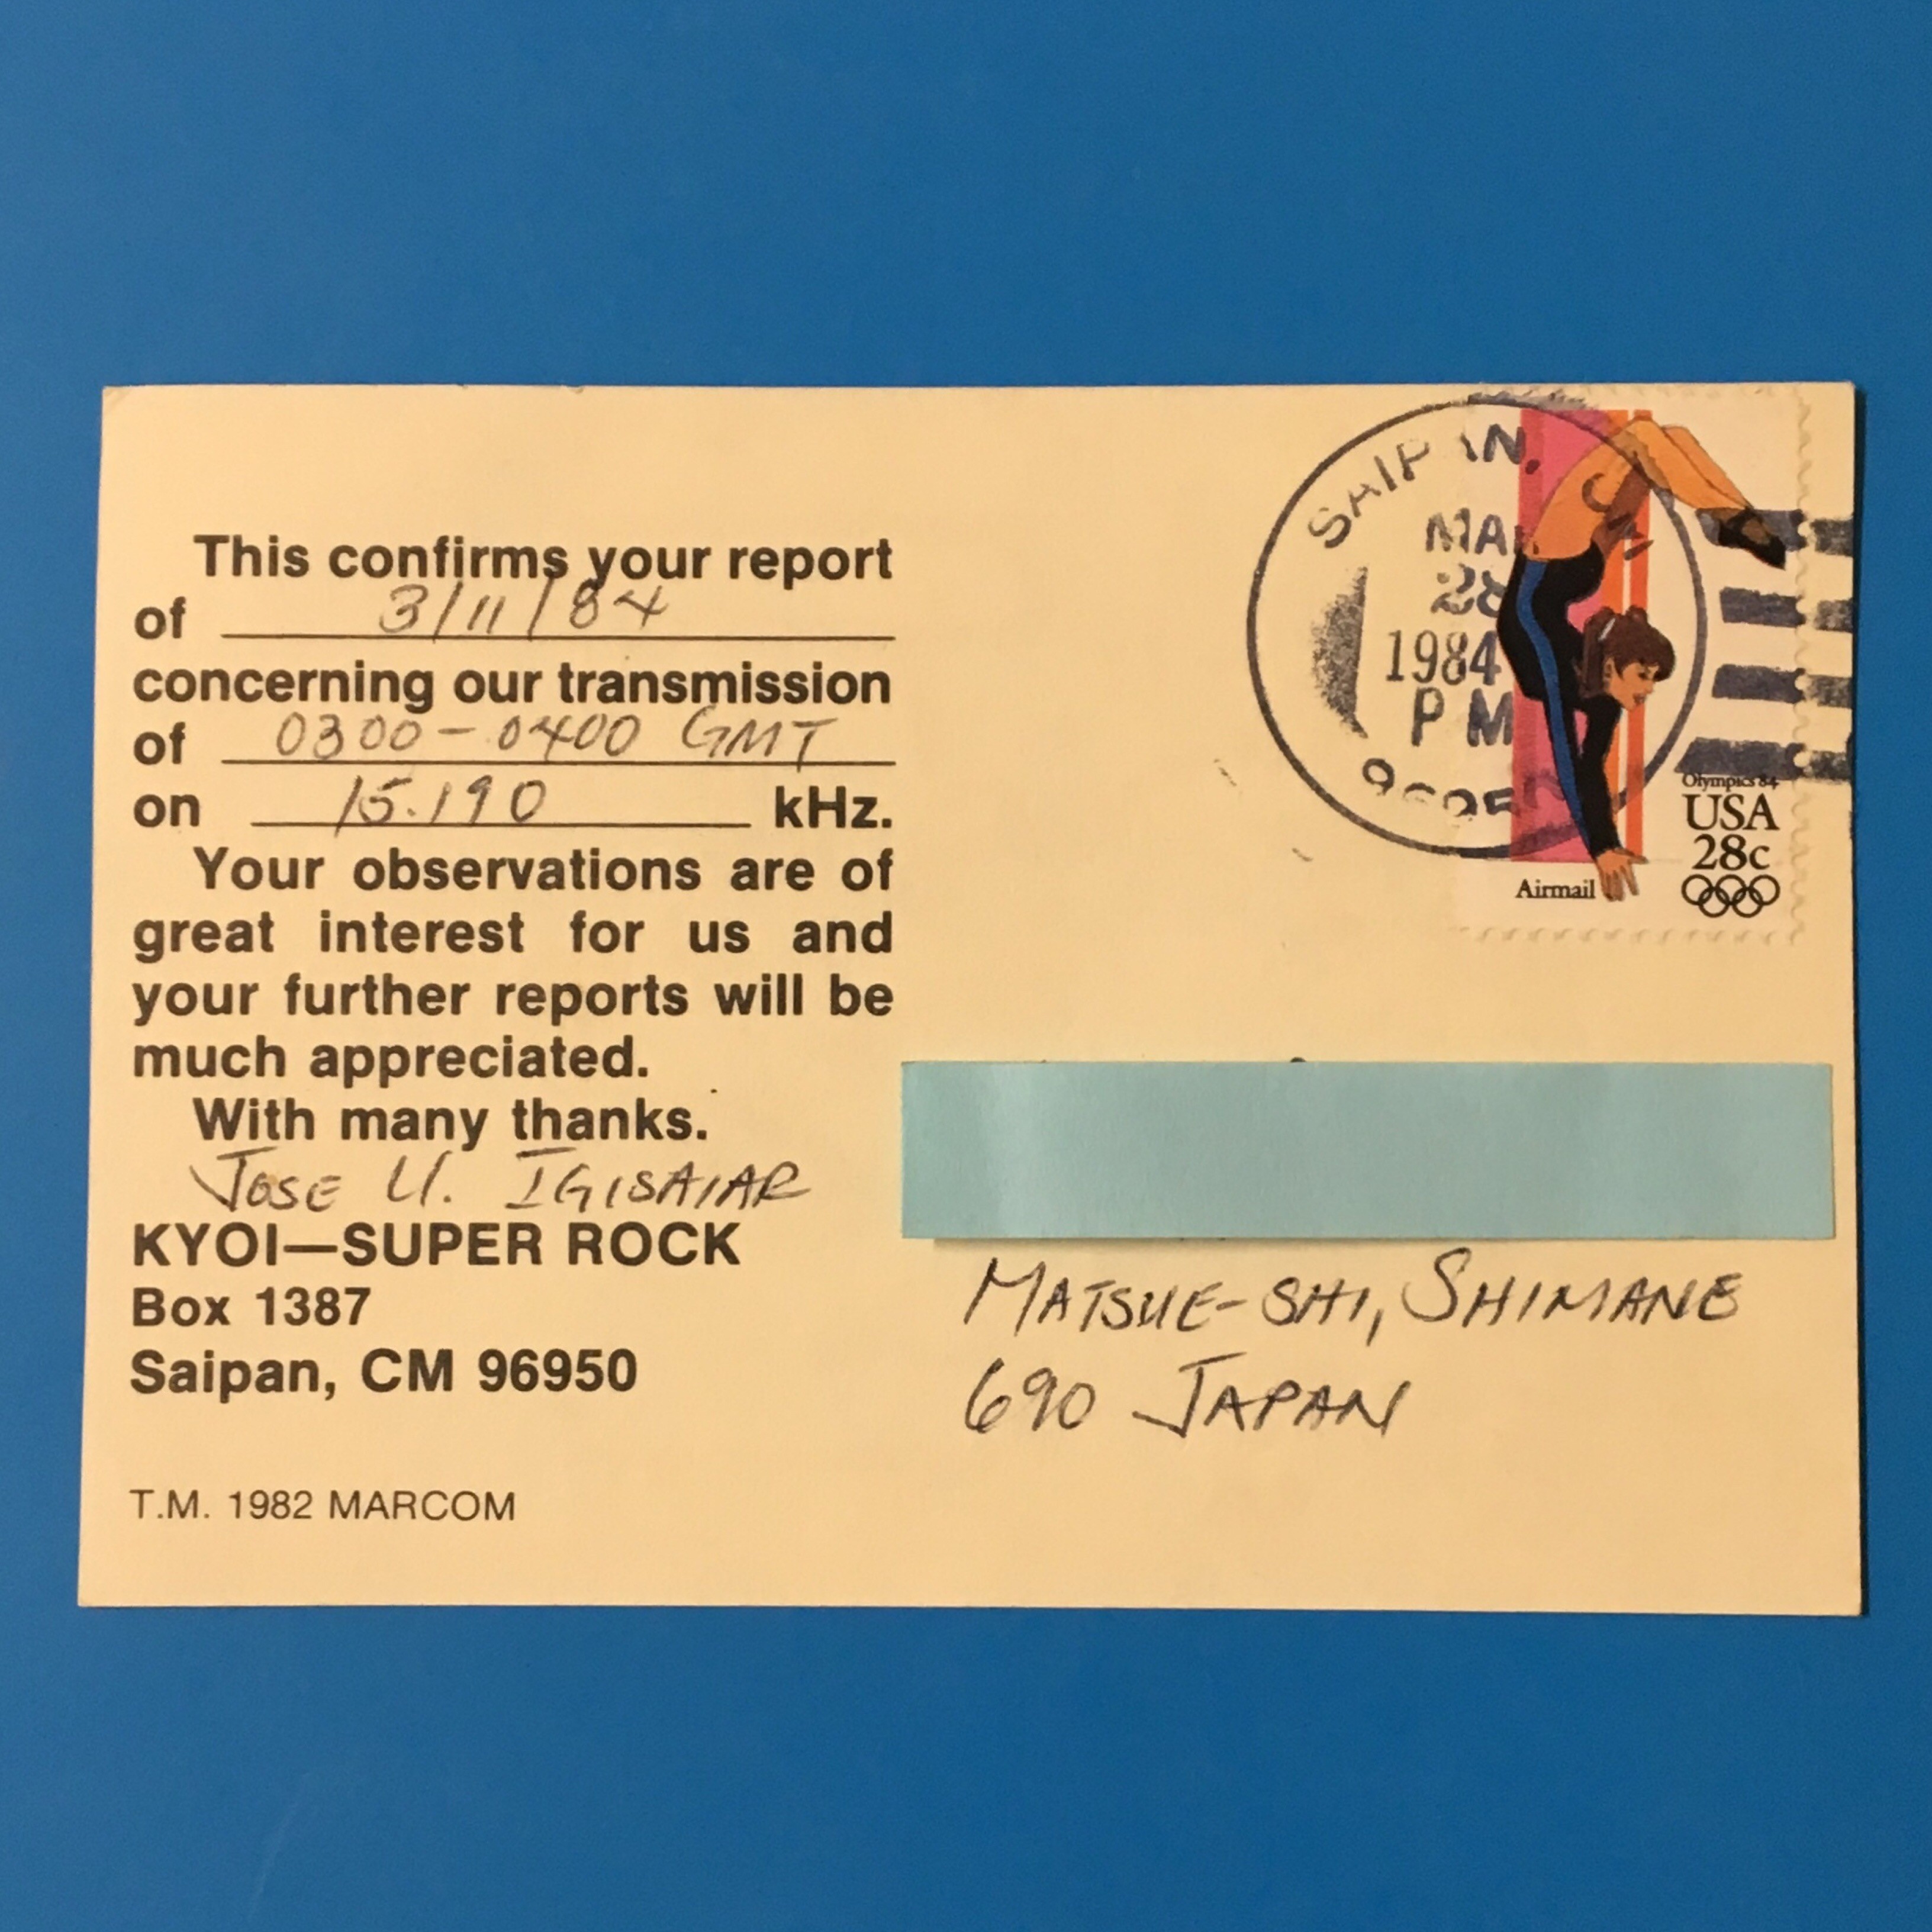 This confirms your report
of 3/11/84
concerning our transmission
of 0300-0400 GMT
on 15.190 kHz.
Your observations are of
great interest for us and
your further reports will be
much appreciated.
With many thanks.
JOSE U. IGISAIAR
KYOI—SUPER ROCK
Box 1387
Saipan, CM 96950
T.M. 1982 MARCOM
SAIPAN, CM
28
1984
PM
Olympics 84
USA
28c
Airmail
MATSUE-SHI, SHIMANE
690 JAPAN